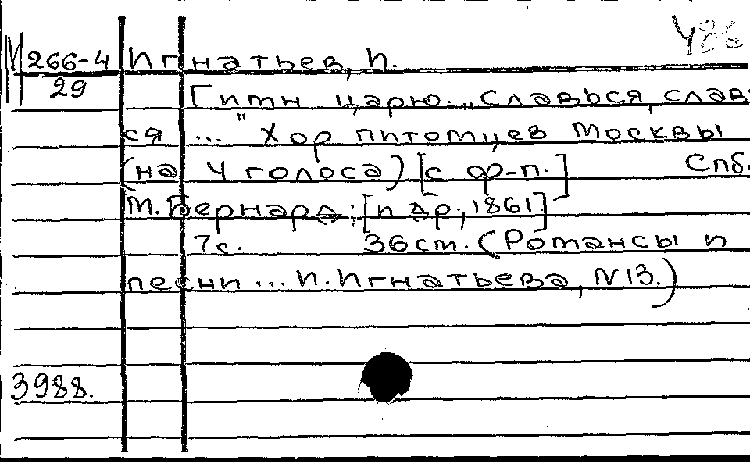 М 266-4 Игнатьев, И.
29
Гимн царю... „Славься, славь
ся ..." Хор питомцев Москвы
(на 4 голоса) [с ф-п.] Спб.
М. Бернард; [и др., 1861]
7с. 36см. (Романсы и
песни ... И. Игнатьева, N13.)
3988.